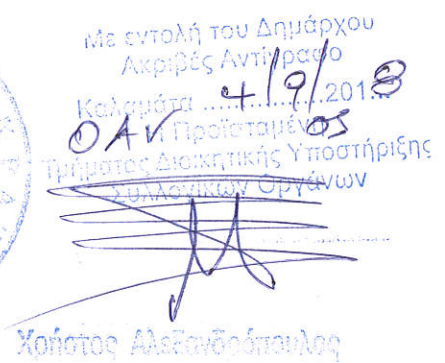 Με εντολή του Δημάρχου
Ακριβές Αντίγραφο
Καλαμάτα 4/9/2018
Ο ΑΝ Προϊστάμενος
Τμήματος Διοικητικής Υποστήριξης
Συλλογικών Οργάνων
Χρήστος Αλεξανδρόπουλος